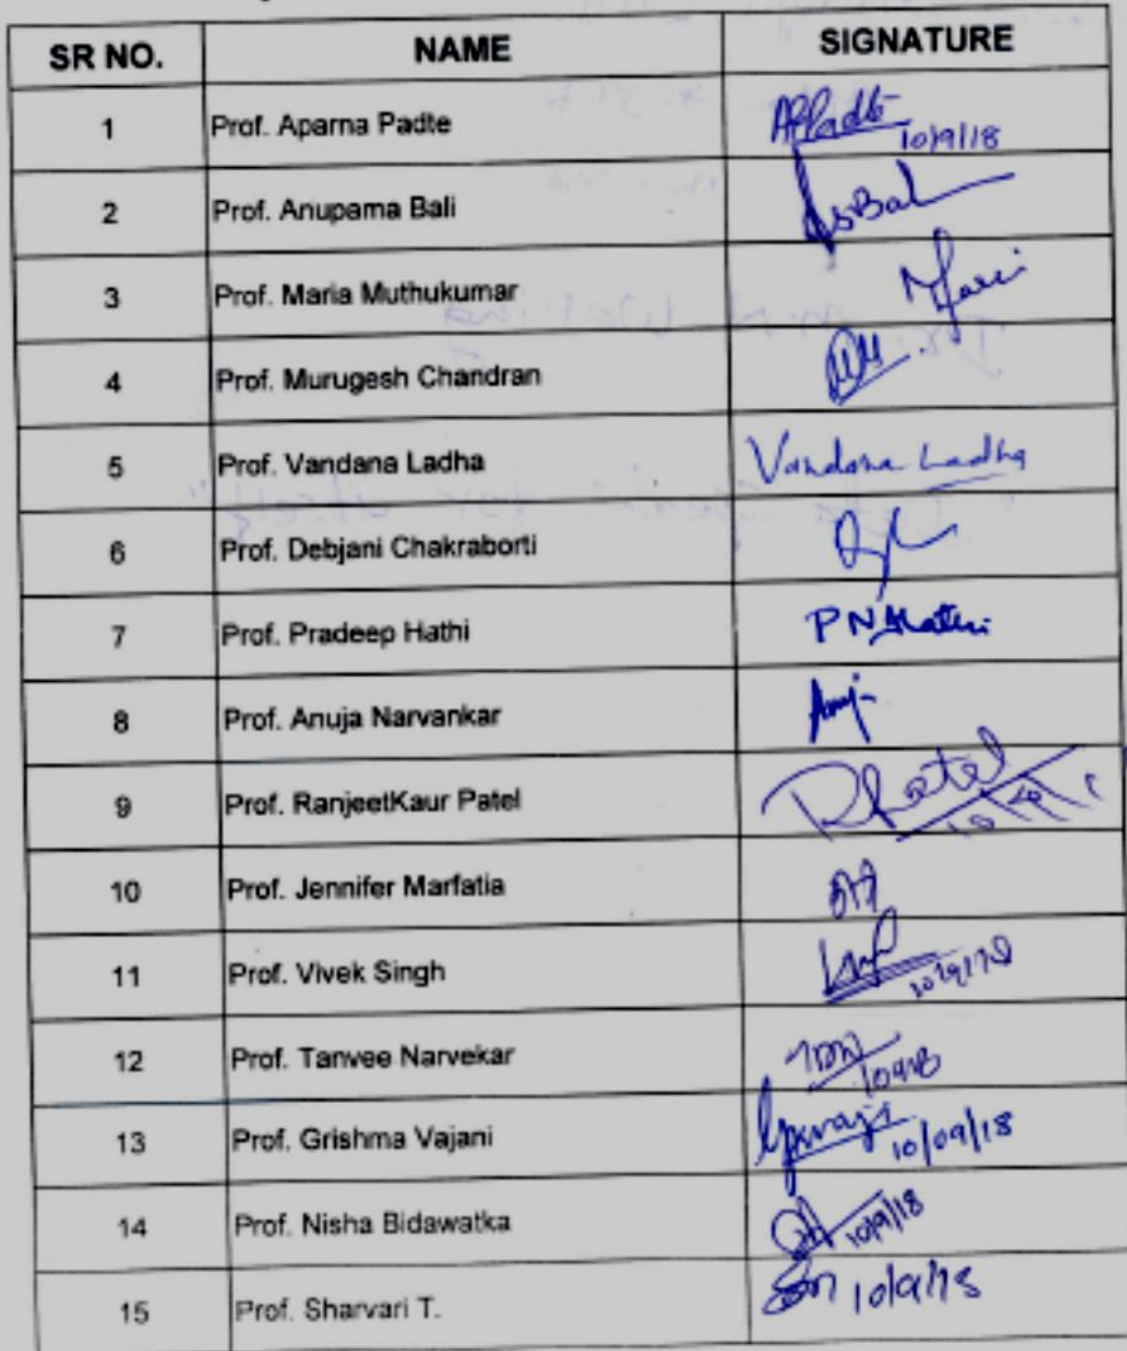 SR NO. NAME SIGNATURE
1 Prof. Aparna Padte APPadte 10/9/18
2 Prof. Anupama Bali
3 Prof. Maria Muthukumar
4 Prof. Murugesh Chandran
5 Prof. Vandana Ladha Vandana Ladha
6 Prof. Debjani Chakraborti
7 Prof. Pradeep Hathi PNHathi
8 Prof. Anuja Narvankar Anuj
9 Prof. RanjeetKaur Patel RPatel
10 Prof. Jennifer Marfatia
11 Prof. Vivek Singh 10/9/18
12 Prof. Tanvee Narvekar
13 Prof. Grishma Vajani 10/09/18
14 Prof. Nisha Bidawatka 10/9/18
15 Prof. Sharvari T. 10/9/18